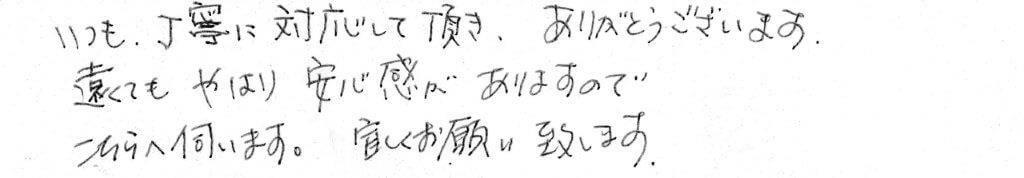 いつも、丁寧に対応して頂き、ありがとうございます。
遠くても やはり 安心感が ありますので
こちらへ伺います。宜しくお願い致します。